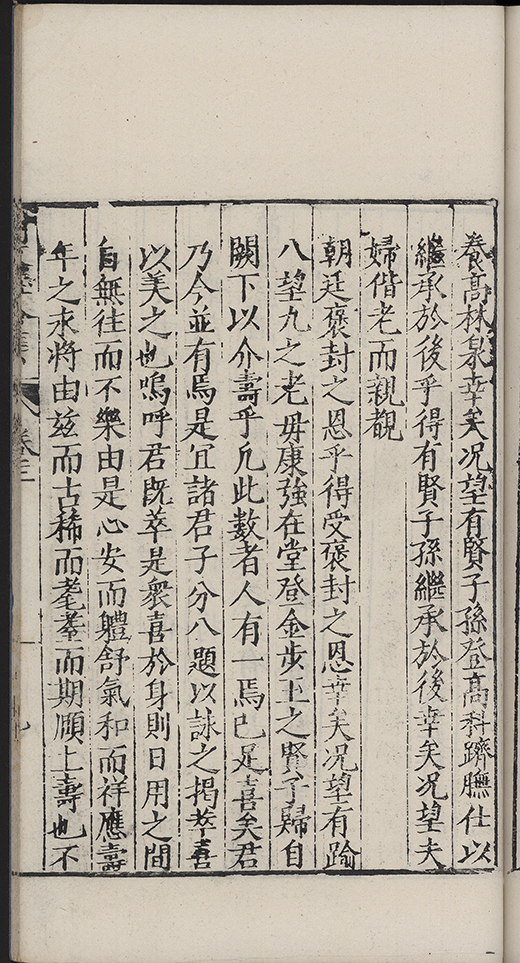 養高林泉幸矣况望有賢子孫登高科躋膴仕以
繼承於後乎得有賢子孫繼承於後幸矣况望夫
婦偕老而親覩
朝廷褒封之恩乎得受褒封之恩幸矣况望有踰
八望九之老毋康強在堂登金步玉之賢子歸自
闕下以介壽乎凡此數者人有一焉已足喜矣君
乃今並有焉是冝諸君子分八題以詠之掲萃喜
以美之也嗚呼君既萃是衆喜於身則日用之間
自無往而不樂由是心安而軆舒氣和而祥應壽
年之永將由兹而古稀而耄耋而期頤上壽也不
卷三